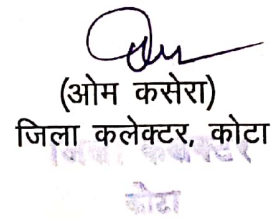 (ओम कसेरा)
जिला कलेक्टर, कोटा
जिला कलेक्टर
कोटा